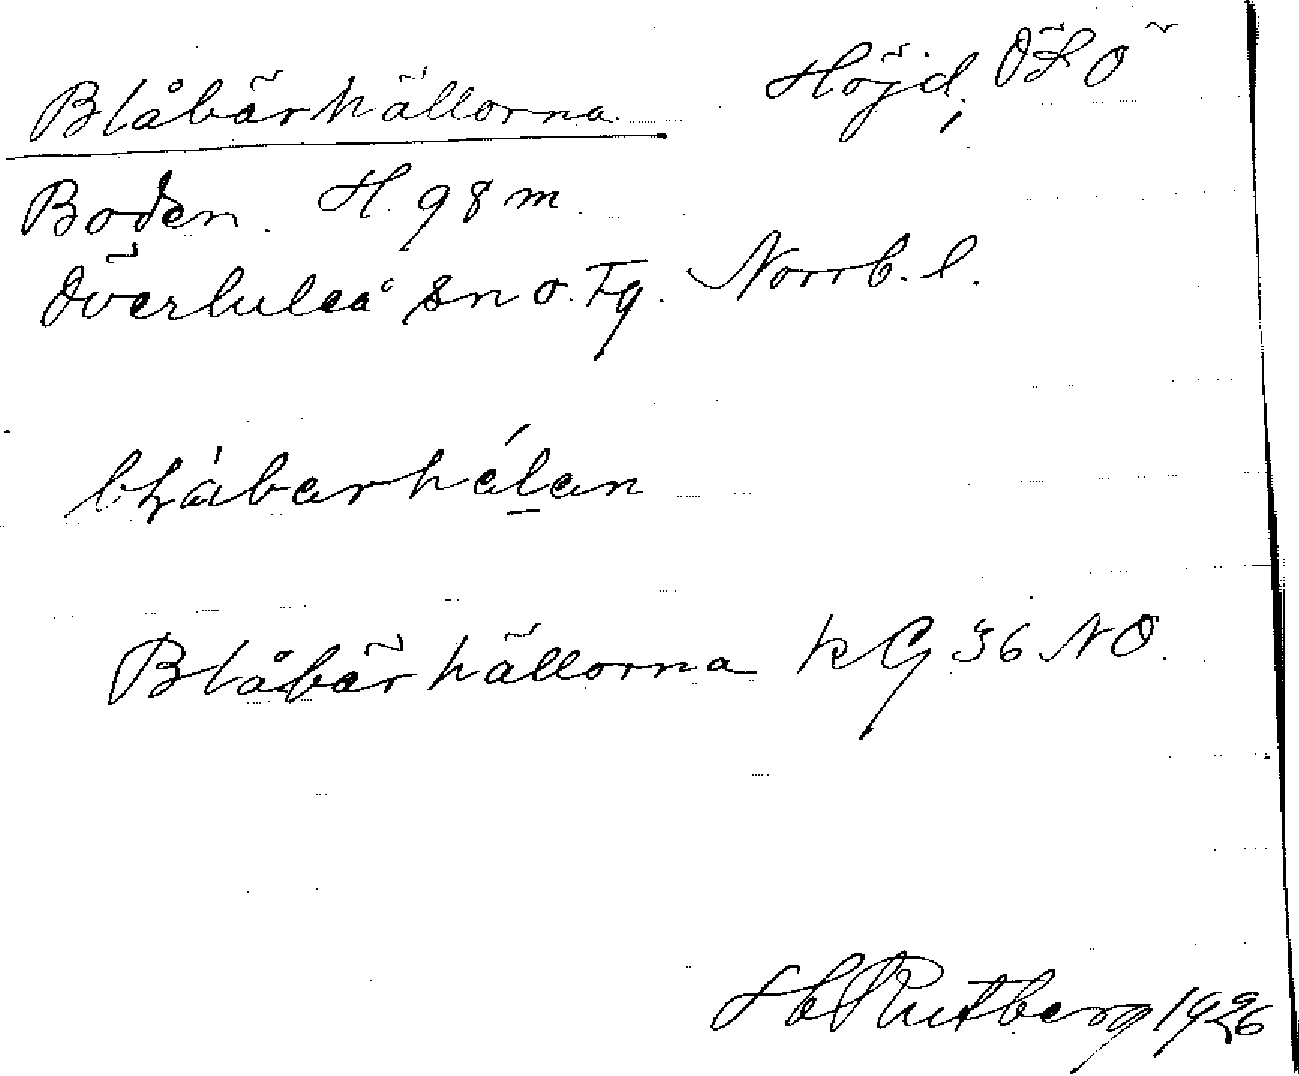 Blåbärhällorna Höjd, ÖLÖ
Boden. H. 98 m.
Överluleå sn o. Tg. Norrb. l.
blåbarhälan
Blåbärhällorna k G 36 NO.
H Rutberg 1926